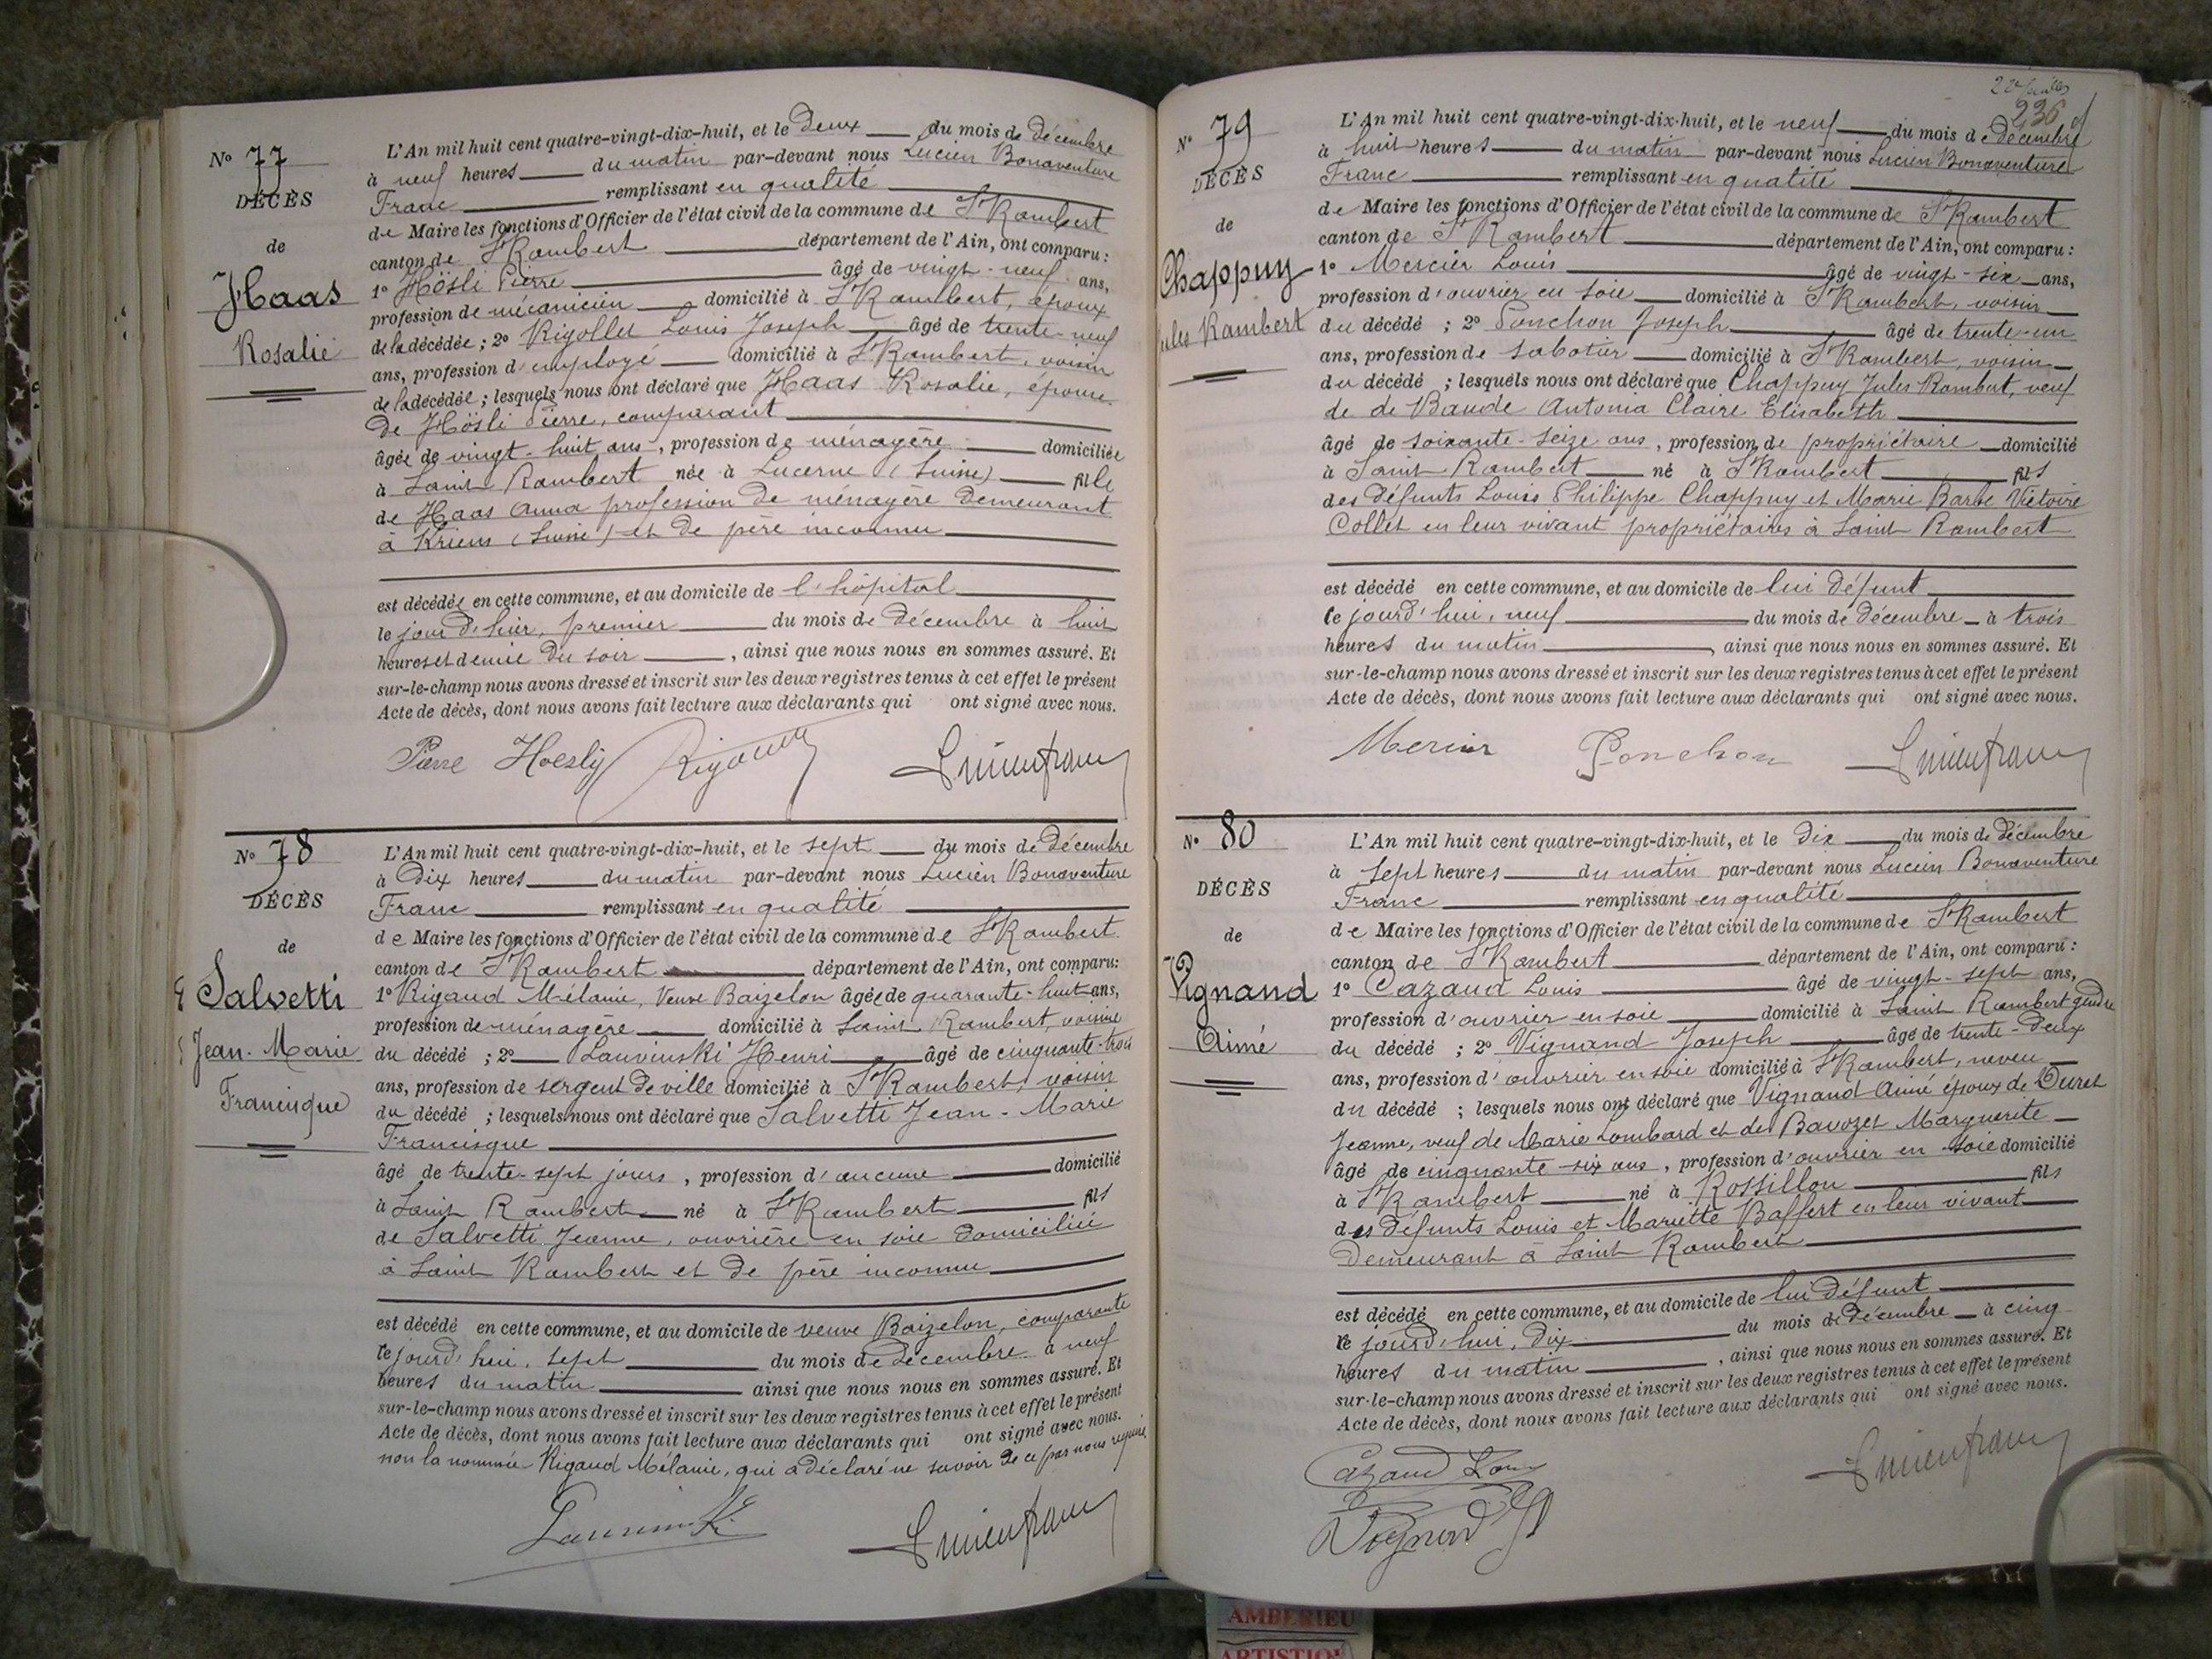 N° 77
DÉCÈS
de
Haas
Rosalie
L'An mil huit cent quatre-vingt-dix-huit, et le deux du mois de décembre
à neuf heures du matin par-devant nous Lucien Bonaventure
Franc remplissant en qualité
de Maire les fonctions d'Officier de l'état civil de la commune de St Rambert
canton de St Rambert département de l'Ain, ont comparu:
1° Hösli Pierre âgé de vingt-neuf ans,
profession de mécanicien domicilié à St Rambert, époux
de la décédée; 2° Rigollet Louis Joseph âgé de trente-neuf
ans, profession d'employé domicilié à St Rambert, voisin
de la décédée; lesquels nous ont déclaré que Haas Rosalie, épouse
de Hösli Pierre, comparant
âgée de vingt-huit ans, profession de ménagère domiciliée
à Saint Rambert née à Lucerne (Suisse) fille
de Haas Anna profession de ménagère demeurant
à Kriens (Suisse) et de père inconnu
est décédée en cette commune, et au domicile de l'hôpital
le jour d'hier, premier du mois de décembre à huit
heures et demie du soir, ainsi que nous nous en sommes assuré. Et
sur-le-champ nous avons dressé et inscrit sur les deux registres tenus à cet effet le présent
Acte de décès, dont nous avons fait lecture aux déclarants qui ont signé avec nous.
Pierre Hoesly Rigollet Lucien franc
N° 78
DÉCÈS
de
Salvetti
Jean-Marie
Francisque
L'An mil huit cent quatre-vingt-dix-huit, et le sept du mois de décembre
à dix heures du matin par-devant nous Lucien Bonaventure
Franc remplissant en qualité
de Maire les fonctions d'Officier de l'état civil de la commune de St Rambert
canton de St Rambert département de l'Ain, ont comparu:
1° Rigaud Mélanie, Veuve Baizelon âgée de quarante-huit ans,
profession de ménagère domicilié à Saint Rambert, voisine
du décédé; 2° Lauvinski Henri âgé de cinquante-trois
ans, profession de sergent de ville domicilié à St Rambert, voisin
du décédé; lesquels nous ont déclaré que Salvetti Jean-Marie
Francisque
âgé de trente-sept jours, profession d'aucune domicilié
à Saint Rambert né à St Rambert fils
de Salvetti Jeanne, ouvrière en soie domiciliée
à Saint Rambert et de père inconnu
est décédé en cette commune, et au domicile de veuve Baizelon, comparante
le jourd'hui, sept du mois de décembre à neuf
heures du matin ainsi que nous nous en sommes assuré. Et
sur-le-champ nous avons dressé et inscrit sur les deux registres tenus à cet effet le présent
Acte de décès, dont nous avons fait lecture aux déclarants qui ont signé avec nous.
non la nommée Rigaud Mélanie, qui a déclaré ne savoir de ce par nous requise
Lauvinski Lucien franc
236
N° 79
DÉCÈS
de
Chappuy
Jules Rambert
L'An mil huit cent quatre-vingt-dix-huit, et le neuf du mois de décembre
à huit heures du matin par-devant nous Lucien Bonaventure
Franc remplissant en qualité
de Maire les fonctions d'Officier de l'état civil de la commune de St Rambert
canton de St Rambert département de l'Ain, ont comparu:
1° Mercier Louis âgé de vingt-six ans,
profession d'ouvrier en soie domicilié à St Rambert, voisin
du décédé; 2° Ponchon Joseph âgé de trente-un
ans, profession de sabotier domicilié à St Rambert, voisin
du décédé; lesquels nous ont déclaré que Chappuy Jules Rambert, veuf
de de Baude Antonia Claire Elisabeth
âgé de soixante-seize ans, profession de propriétaire domicilié
à Saint Rambert né à St Rambert fils
des défunts Louis Philippe Chappuy et Marie Barbe Victoire
Collet en leur vivant propriétaires à Saint Rambert
est décédé en cette commune, et au domicile de lui défunt
le jourd'hui, neuf du mois de décembre à trois
heures du matin, ainsi que nous nous en sommes assuré. Et
sur-le-champ nous avons dressé et inscrit sur les deux registres tenus à cet effet le présent
Acte de décès, dont nous avons fait lecture aux déclarants qui ont signé avec nous.
Mercier Ponchon Lucien franc
N° 80
DÉCÈS
de
Vignand
Aimé
L'An mil huit cent quatre-vingt-dix-huit, et le dix du mois de décembre
à sept heures du matin par-devant nous Lucien Bonaventure
Franc remplissant en qualité
de Maire les fonctions d'Officier de l'état civil de la commune de St Rambert
canton de St Rambert département de l'Ain, ont comparu:
1° Cazaud Louis âgé de vingt-sept ans,
profession d'ouvrier en soie domicilié à Saint Rambert gendre
du décédé; 2° Vignand Joseph âgé de trente-deux
ans, profession d'ouvrier en soie domicilié à St Rambert, neveu
du décédé; lesquels nous ont déclaré que Vignand Aimé époux de Duret
Jeanne, veuf de Marie Lombard et de Bavozet Marguerite
âgé de cinquante-six ans, profession d'ouvrier en soie domicilié
à St Rambert né à Rossillon fils
des défunts Louis et Mariette Baffert en leur vivant
demeurant à Saint Rambert
est décédé en cette commune, et au domicile de lui défunt
le jourd'hui, dix du mois de décembre à cinq
heures du matin, ainsi que nous nous en sommes assuré. Et
sur-le-champ nous avons dressé et inscrit sur les deux registres tenus à cet effet le présent
Acte de décès, dont nous avons fait lecture aux déclarants qui ont signé avec nous.
Cazaud Louis Lucien franc
Vignand
AMBERIEU